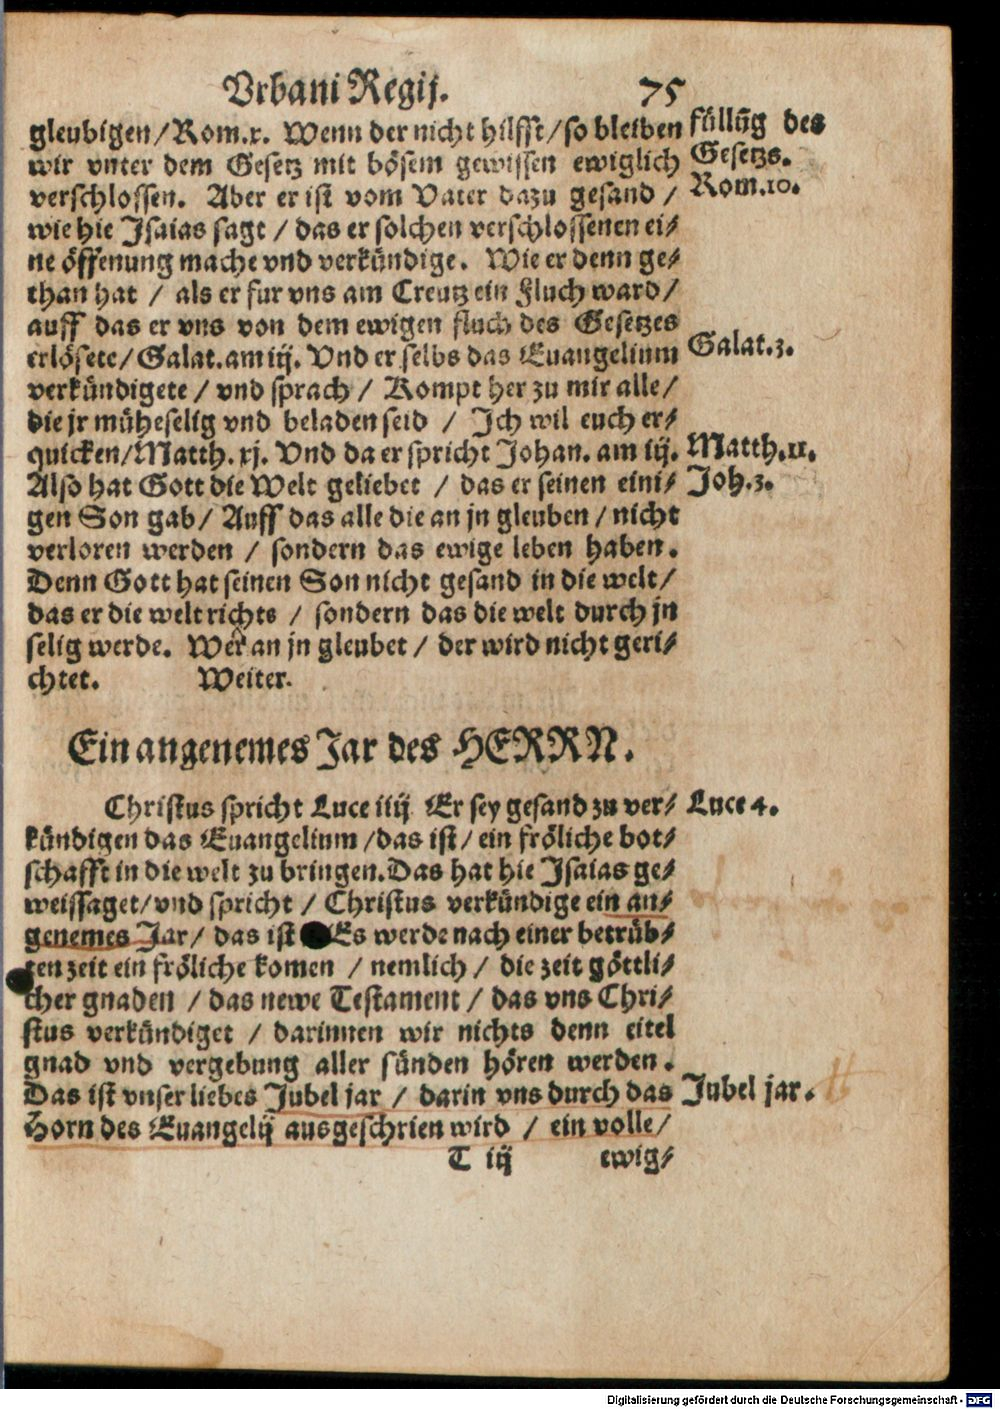 Vrbani Regij. 75
gleubigen/Rom.x. Wenn der nicht hilfft/so bleiben
wir vnter dem Gesetz mit bösem gewissen ewiglich
verschlossen. Aber er ist vom Vater dazu gesand /
wie hie Isaias sagt / das er solchen verschlossenen ei⸗
ne öffenung mache vnd verkündige. Wie er denn ge⸗
than hat / als er fur vns am Creutz ein Fluch ward/
auff das er vns von dem ewigen fluch des Gesetzes
erlösete/Galat.am iij. Vnd er selbs das Euangelium
verkündigete / vnd sprach / Kompt her zu mir alle/
die jr müheselig vnd beladen seid / Ich wil euch er⸗
quicken/Matth. xj. Vnd da er spricht Johan. am iij.
Also hat Gott die Welt geliebet / das er seinen eini⸗
gen Son gab/ Auff das alle die an jn gleuben / nicht
verloren werden / sondern das ewige leben haben.
Denn Gott hat seinen Son nicht gesand in die welt/
das er die welt richte / sondern das die welt durch jn
selig werde. Wer an jn gleubet / der wird nicht geri⸗
chtet. Weiter.
füllūg des
Gesetzs.
Rom.10.
Galat.3.
Matth.11.
Joh.3.
Ein angenemes Jar des HERRN.
Christus spricht Luce iiij Er sey gesand zu ver⸗
kündigen das Euangelium /das ist/ ein fröliche bot⸗
schafft in die welt zu bringen.Das hat hie Isaias ge⸗
weissaget/vnd spricht / Christus verkündige ein an⸗
genemes Jar/ das ist Es werde nach einer betrüb⸗
ten zeit ein fröliche komen / nemlich / die zeit göttli⸗
cher gnaden / das newe Testament / das vns Chri⸗
stus verkündiget / darinnen wir nichts denn eitel
gnad vnd vergebung aller sünden hören werden.
Das ist vnser liebes Jubel jar / darin vns durch das
Horn des Euangelij ausgeschrien wird / ein volle/
Luce 4.
Jubel jar.
T iij ewig⸗
Digitalisierung gefördert durch die Deutsche Forschungsgemeinschaft - DFG